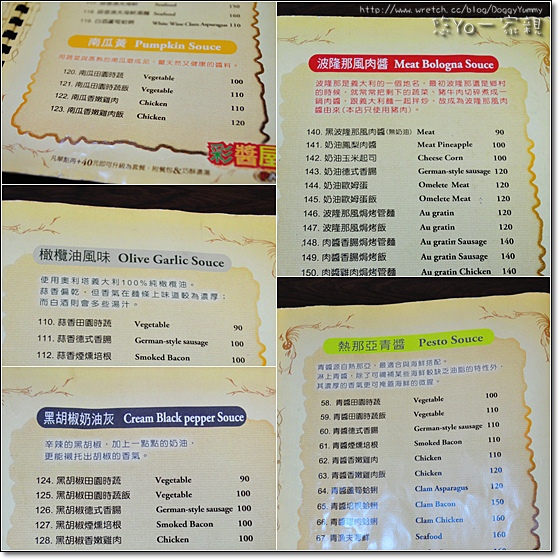 118. 白酒蘆筍蛤蜊 White Wine Clam Asparagus 160
南瓜黃 Pumpkin Souce
120. 南瓜田園時蔬 Vegetable 100
121. 南瓜田園時蔬飯 Vegetable 110
122. 南瓜香嫩雞肉 Chicken 100
123. 南瓜香嫩雞肉飯 Chicken 110
凡單點再+40元即可升級為套餐，附餐包&奶酥濃湯
彩醬屋
橄欖油風味 Olive Garlic Souce
使用奧利塔義大利100%純橄欖油。
蒜香偏乾，但香氣在麵條上味道較為濃厚；
而白酒則會多些湯汁。
110. 蒜香田園時蔬 Vegetable 90
111. 蒜香德式香腸 German-style sausage 100
112. 蒜香煙燻培根 Smoked Bacon 100
黑胡椒奶油灰 Cream Black pepper Souce
辛辣的黑胡椒，加上一點點的奶油，
更能襯托出胡椒的香氣。
124. 黑胡椒田園時蔬 Vegetable 90
125. 黑胡椒田園時蔬飯 Vegetable 100
126. 黑胡椒德式香腸 German-style sausage 100
127. 黑胡椒煙燻培根 Smoked Bacon 100
128. 黑胡椒香嫩雞肉 Chicken 100
http://www.wretch.cc/blog/DoggyYummy
悠Yo一家親
波隆那風肉醬 Meat Bologna Souce
波隆那是義大利的一個地名，最初波隆那還是鄉村
的時候，就常常把剩下的蔬菜、豬牛肉切碎煮成一
鍋肉醬，跟義大利麵一起拌炒，故成為波隆那風肉
醬由來(本店只使用豬肉)。
140. 黑波隆那風肉醬(無奶油) Meat 90
141. 奶油鳳梨肉醬 Meat Pineapple 100
142. 奶油玉米起司 Cheese Corn 100
143. 奶油德式香腸 German-style sausage 120
144. 奶油歐姆蛋 Omelete Meat 120
145. 奶油歐姆蛋飯 Omelete Meat 120
146. 波隆那風焗烤管麵 Au gratin 120
147. 波隆那風焗烤飯 Au gratin 120
148. 肉醬香腸焗烤管麵 Au gratin Sausage 140
149. 肉醬香腸焗烤飯 Au gratin Sausage 140
150. 肉醬雞肉焗烤管麵 Au gratin Chicken 140
熱那亞青醬 Pesto Souce
青醬源自熱那亞，最適合與海鮮搭配。
淋上青醬，除了可彌補某些海鮮較缺乏油脂的特性外，
其濃厚的香氣更可掩蓋海鮮的微腥。
58. 青醬田園時蔬 Vegetable 100
59. 青醬田園時蔬飯 Vegetable 110
60. 青醬德式香腸 German-style sausage 110
61. 青醬煙燻培根 Smoked Bacon 110
62. 青醬香嫩雞肉 Chicken 110
63. 青醬香嫩雞肉飯 Chicken 120
64. 青醬蘆筍蛤蜊 Clam Asparagus 120
65. 青醬培根蛤蜊 Clam Bacon 150
66. 青醬雞肉蛤蜊 Clam Chicken 160
67. 青漁夫海鮮 Seafood 160